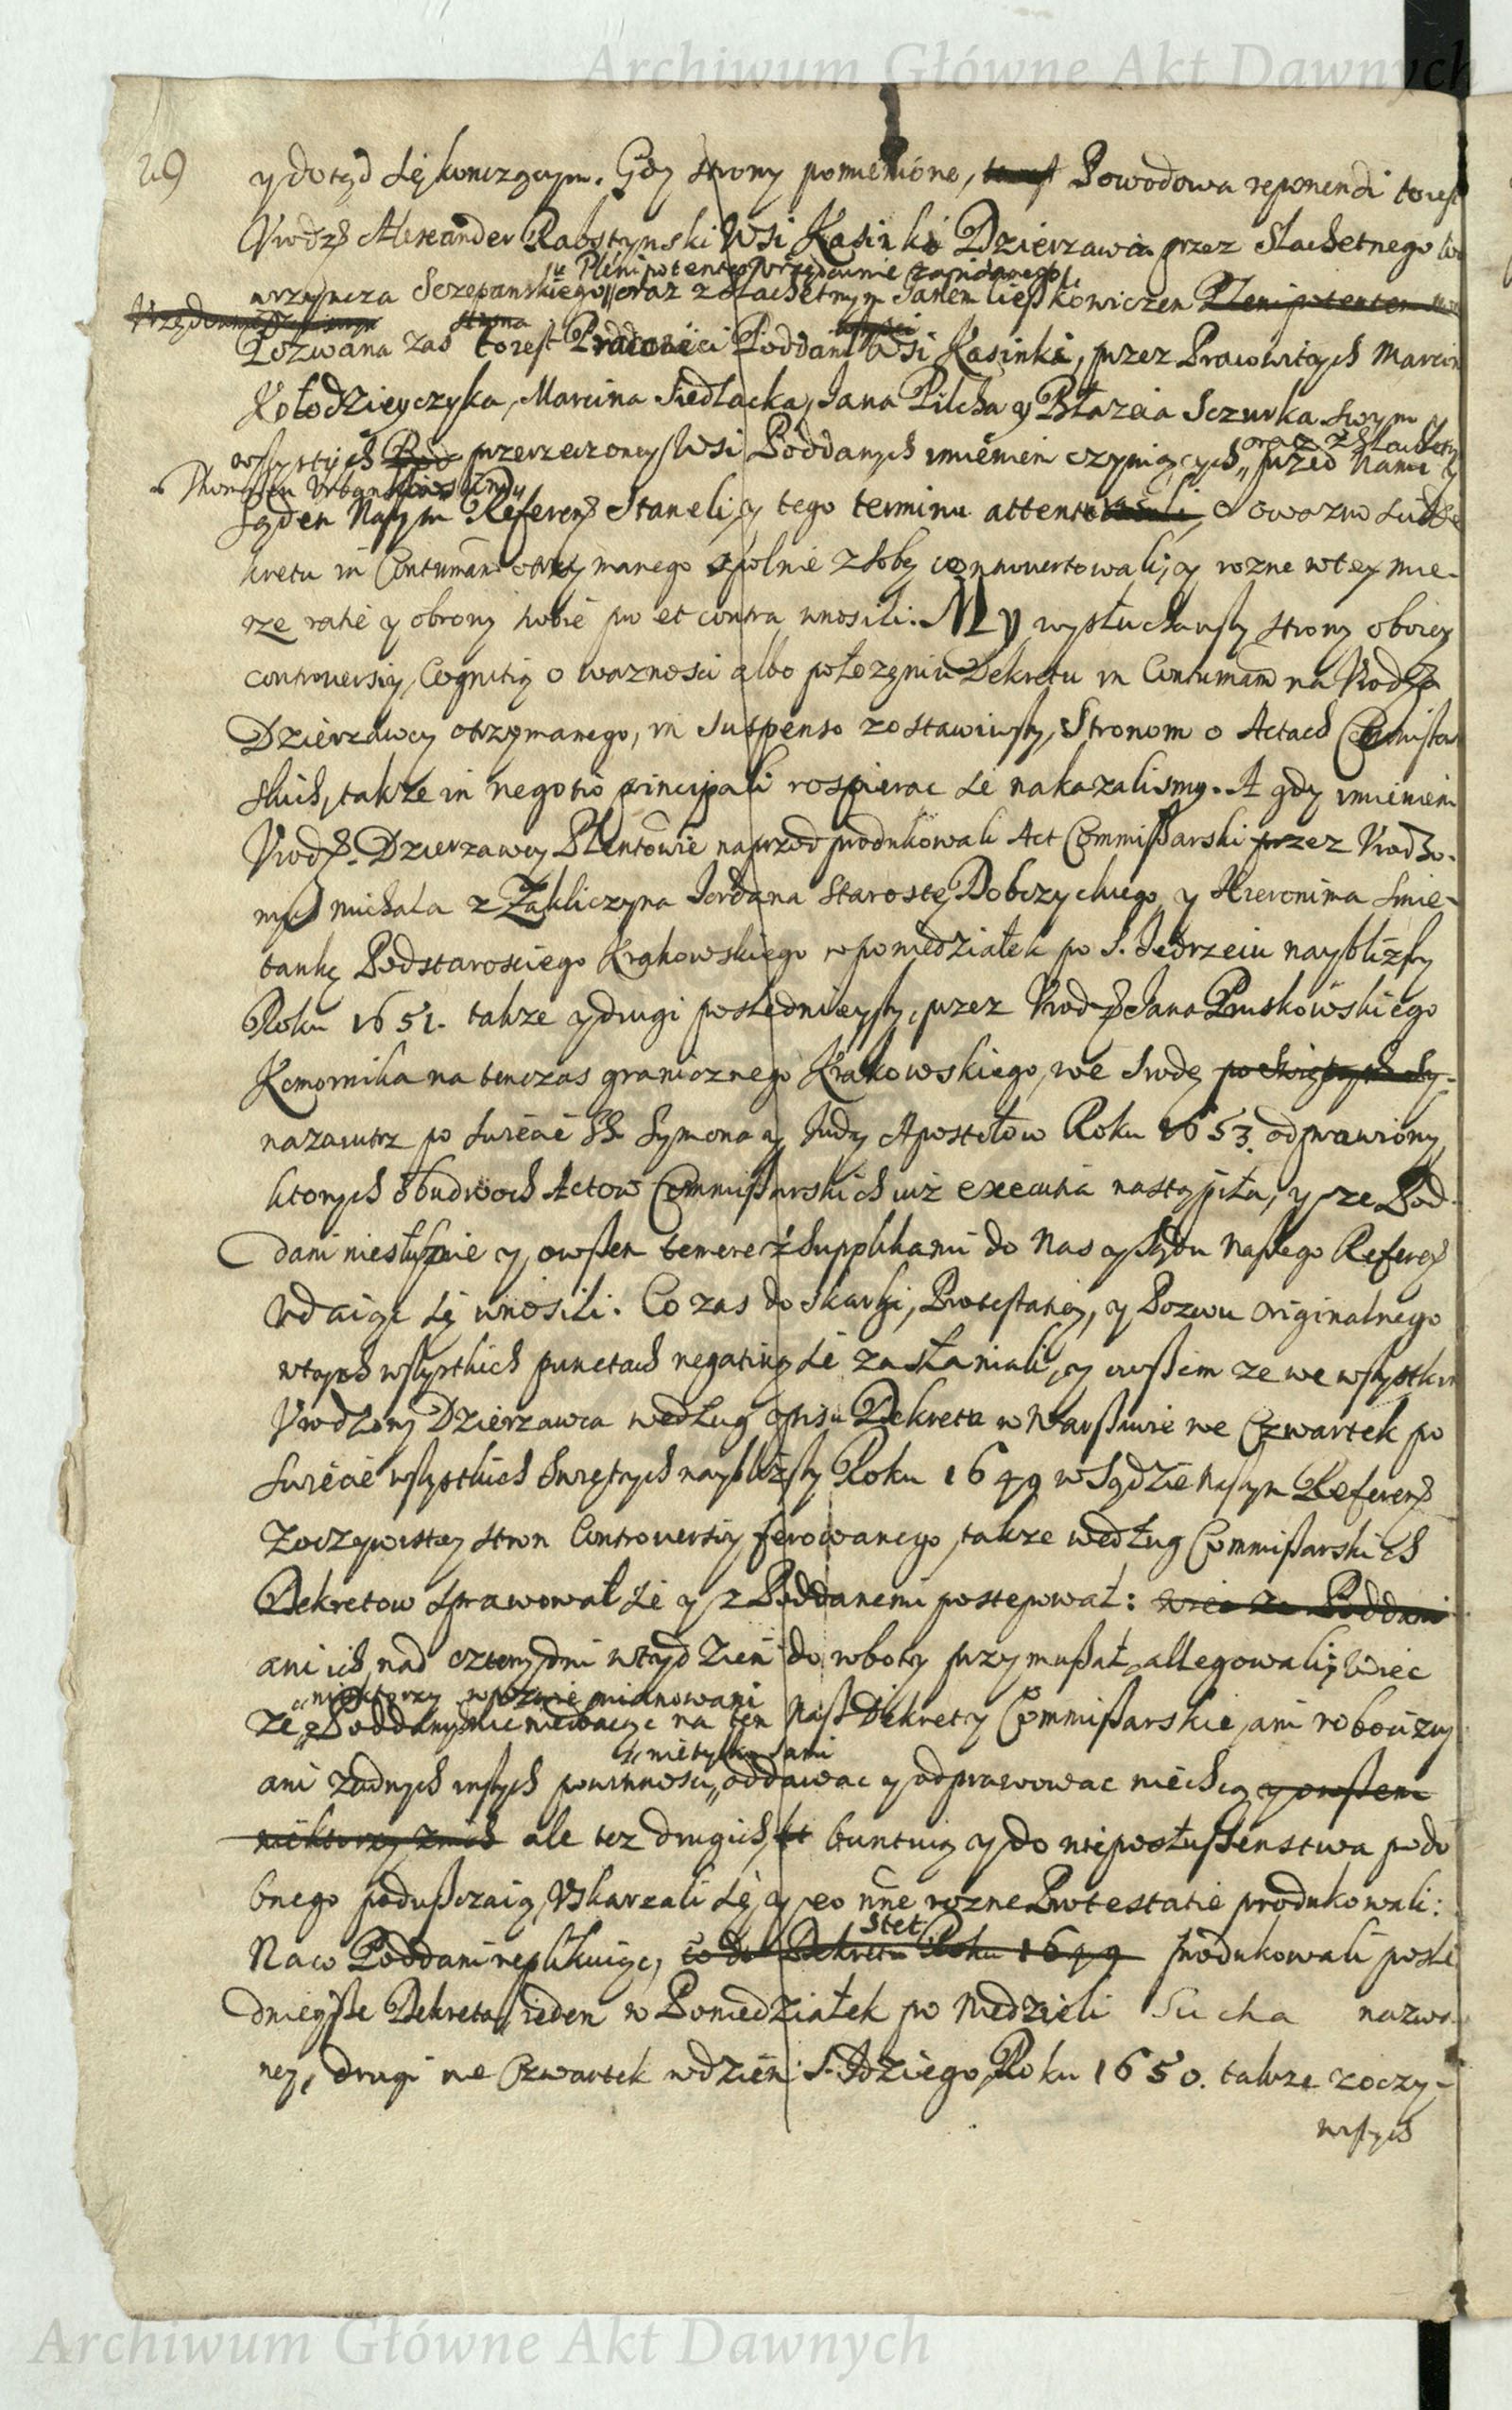 Archiwum Główne Akt Dawnych
29
y dotąd się konczącym. Gdy strony pomienione, Powodowa reponendi to iest
Urodz. Alexander Rabsztynski Wsi Kasinki Dzierzawca przez Slachetnego
Sczepanskiego Plenipotenta urzędownie zapisanego, oraz z Slachetnym Janem Plenipotentem
Pozwana zas strona to iest Pracowici Poddani Wsi Kasinki, przez Pracowitych Marcin
Kołodzieyczyka, Marcina Siedlacka, Jana Pilcha y Błazeia Sczurka swym y
wszystkich przerzeczoney Wsi Poddanych imieniem czyniących, oraz z Slachetn. przed Nami y
Sądem Naszym Referens. Staneli, y tego terminu
kretu in Contumam. otrzymanego spolnie z sobą controvertowali, y rozne w tey mie-
rze ratie y obrony sobie pro et contra wnosili. My wysłuchawszy strony oboiey
controversiy, Cognitią o waznosci albo połozeniu Dekretu in Contumam na Urodz.
Dzierzawcy otrzymanego, in suspenso zostawiwszy, Stronom o Actach Commissar
skich, takze in negotio principali rospierac sie nakazalismy. A gdy imieniem
Urodz. Dzierzawcy Plentowie naprzod produkowali Act Commissarski przez Urodzo-
nych Michała z Zakliczyna Jordana Starostę Dobczyckiego, y Hieronima Smie-
tankę Podstarosciego Krakowskiego w poniedziałek po S. Jędrzeiu nayblizszy
Roku 1651. takze y drugi poslednieyszy, przez Urodz. Jana Pruskowskiego
Komornika na tenczas granicznego Krakowskiego, we Srodę po
nazaiutrz po swiecie SS. Symona y Judy Apostołow Roku 1653. odprawiony,
ktorych obudwoch Actow Commissarskich iuz executia nastąpiła, y ze Pod-
dani niesłusznie y owszem temere z supplikami do Nas y Sądu Naszego Referens.
udaiąc się wnosili. Co zas do skargi, Protestatiey, y Pozwu originalnego
w tych wszystkich punctach negativą sie zasłaniali, y owszem ze we wszystkim
Urodzony Dzierzawca według opisu Dekretu w Warszawie we Czwartek po
swiecie wszystkich Swiętych nayblizszy Roku 1649 w Sądzie Naszym Referens.
z oczywistey stron Controversiy ferowanego, takze według Commissarskich
Dekretow sprawował sie y z Poddanemi postepował: wiec ze Poddani
ani ich nad cztery dni w tydzień do roboty przymuszał allegowali; Wiec
ze niektorzy w pozwie mianowani z Poddanych nic niedbaiąc na ten Nasz Dekret y Commissarskie, ani robocizny
ani zadnych inszych powinnosci, nietylko sami oddawac y odprawowac niechcą y owszem
niektorzy z nich ale tez drugich buntuią y do nieposłuszenstwa podo
bnego poduszczaią, Uskarzali się, y eo nne rozne Protestatie produkowali:
Stet
Na co Poddani replikuiąc, co do Dekretu Roku 1649 produkowali posle
dnieysze Dekreta, ieden w Poniedziałek po Niedzieli Sucha nazwa-
ney, drugi we Czwartek w dzien S. Idziego, Roku 1650. takze z oczy-
wistych
Archiwum Główne Akt Dawnych